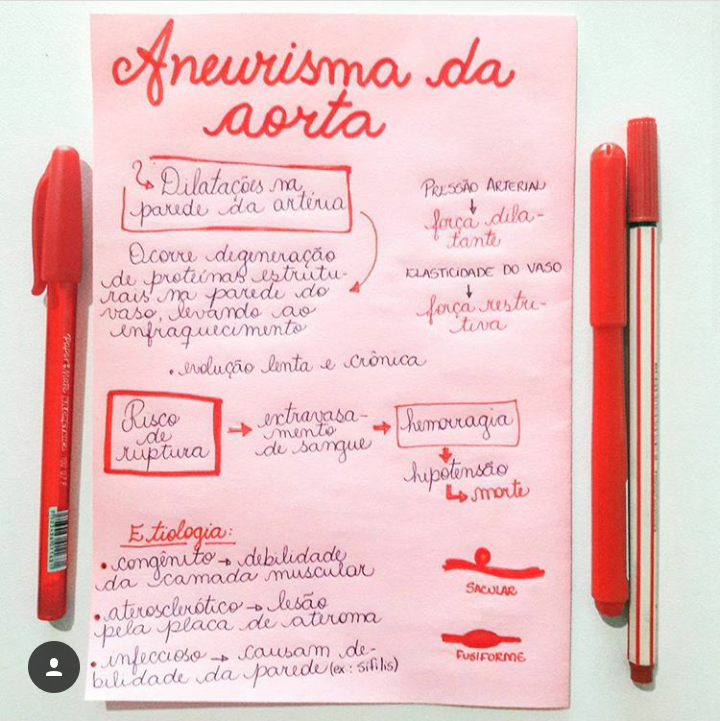 Aneurisma da
aorta
Dilatações na
parede da artéria
Ocorre degeneração
de proteínas estrutu-
rais na parede do
vaso, levando ao
enfraquecimento
PRESSÃO ARTERIAL
força dila-
tante
ELASTICIDADE DO VASO
força restri-
tiva
• evolução lenta e crônica
Risco
de
ruptura
→ extravasa-
mento
de sangue
→ hemorragia
hipotensão
morte
Etiologia:
• congênito → debilidade
da camada muscular
• aterosclerótico → lesão
pela placa de ateroma
• infeccioso → causam de-
bilidade da parede (ex: sífilis)
SACULAR
FUSIFORME